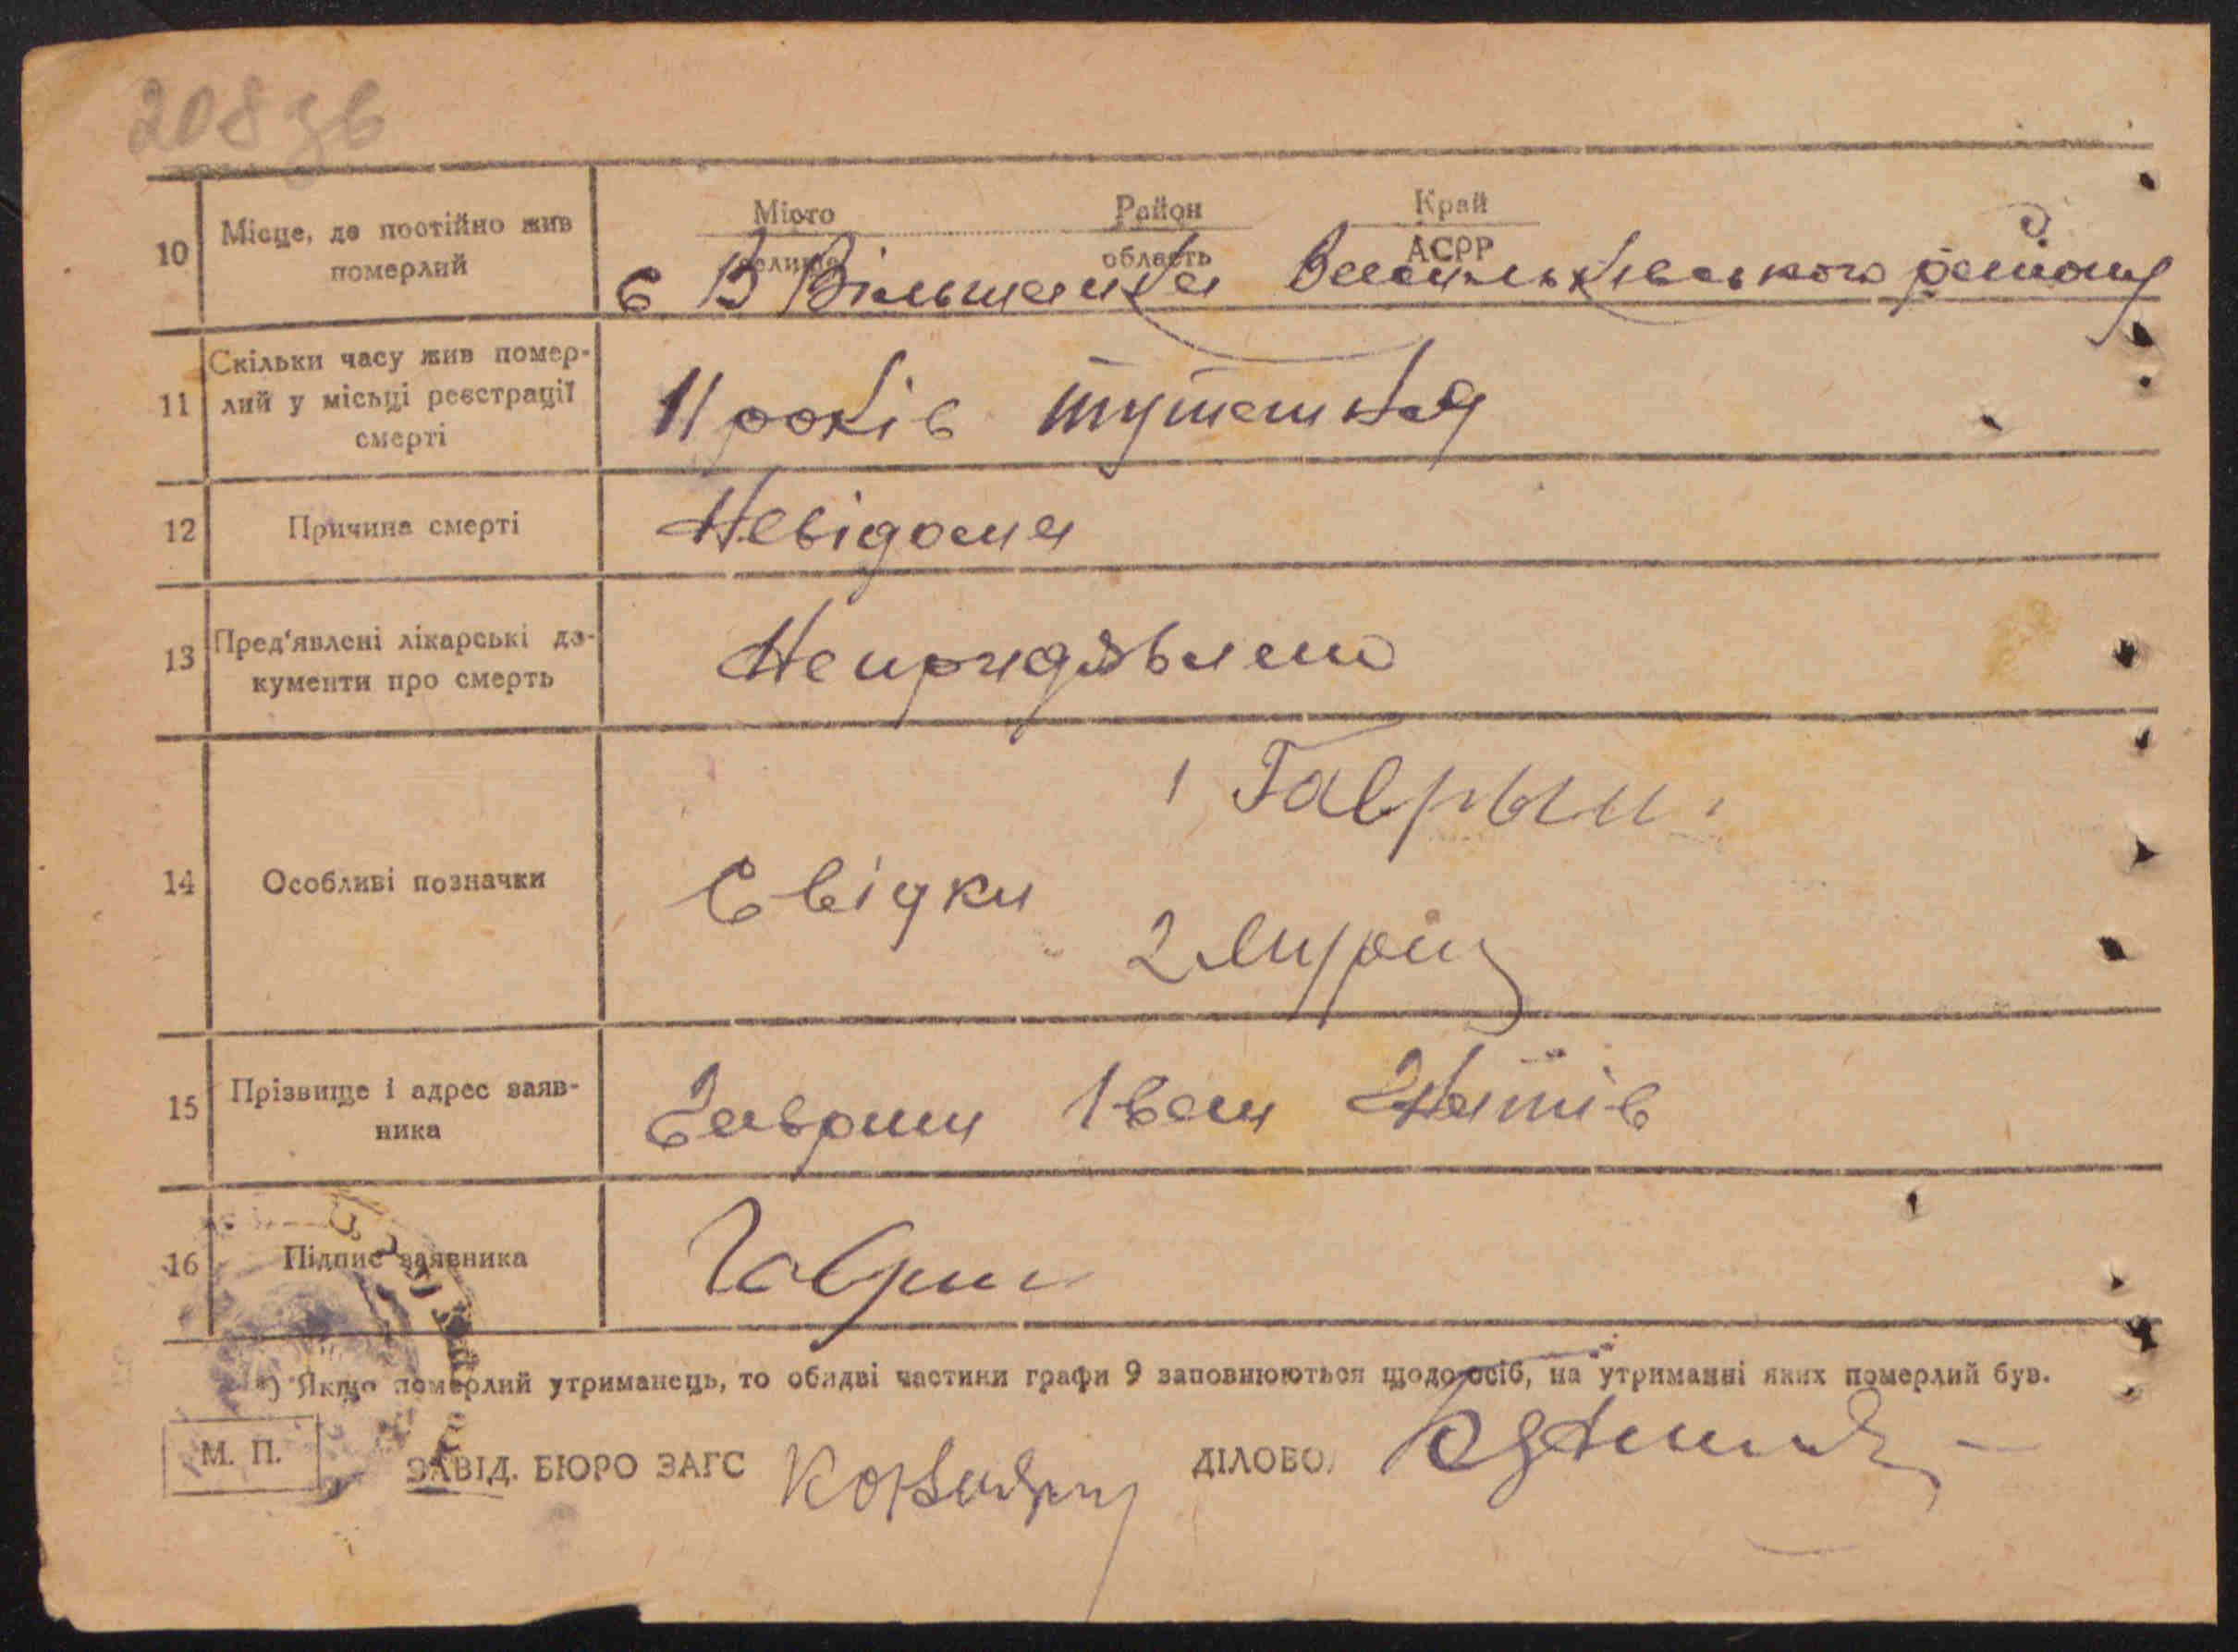 208 зв
10 Місце, де постійно жив померлий
Місто селище Район область Край АСРР
с В Вільшанка Васильківського району
11 Скільки часу жив помер-
лий у місьці реєстрації
смерті
11 років тутешня
12 Причина смерті
Невідома
13 Пред'явлені лікарські до-
кументи про смерть
Непридявлено
14 Особливі позначки
1 Гаврыш
Свідки
2
15 Прізвище і адрес заяв-
ника
Гавриш Іван
16 Підпис заявника
Гавриш
*) Якщо померлий утриманець, то обидві частини графи 9 заповнюються щодо осіб, на утриманні яких померлий був.
М. П.
ЗАВІД. БЮРО ЗАГС
ДІЛОВОД